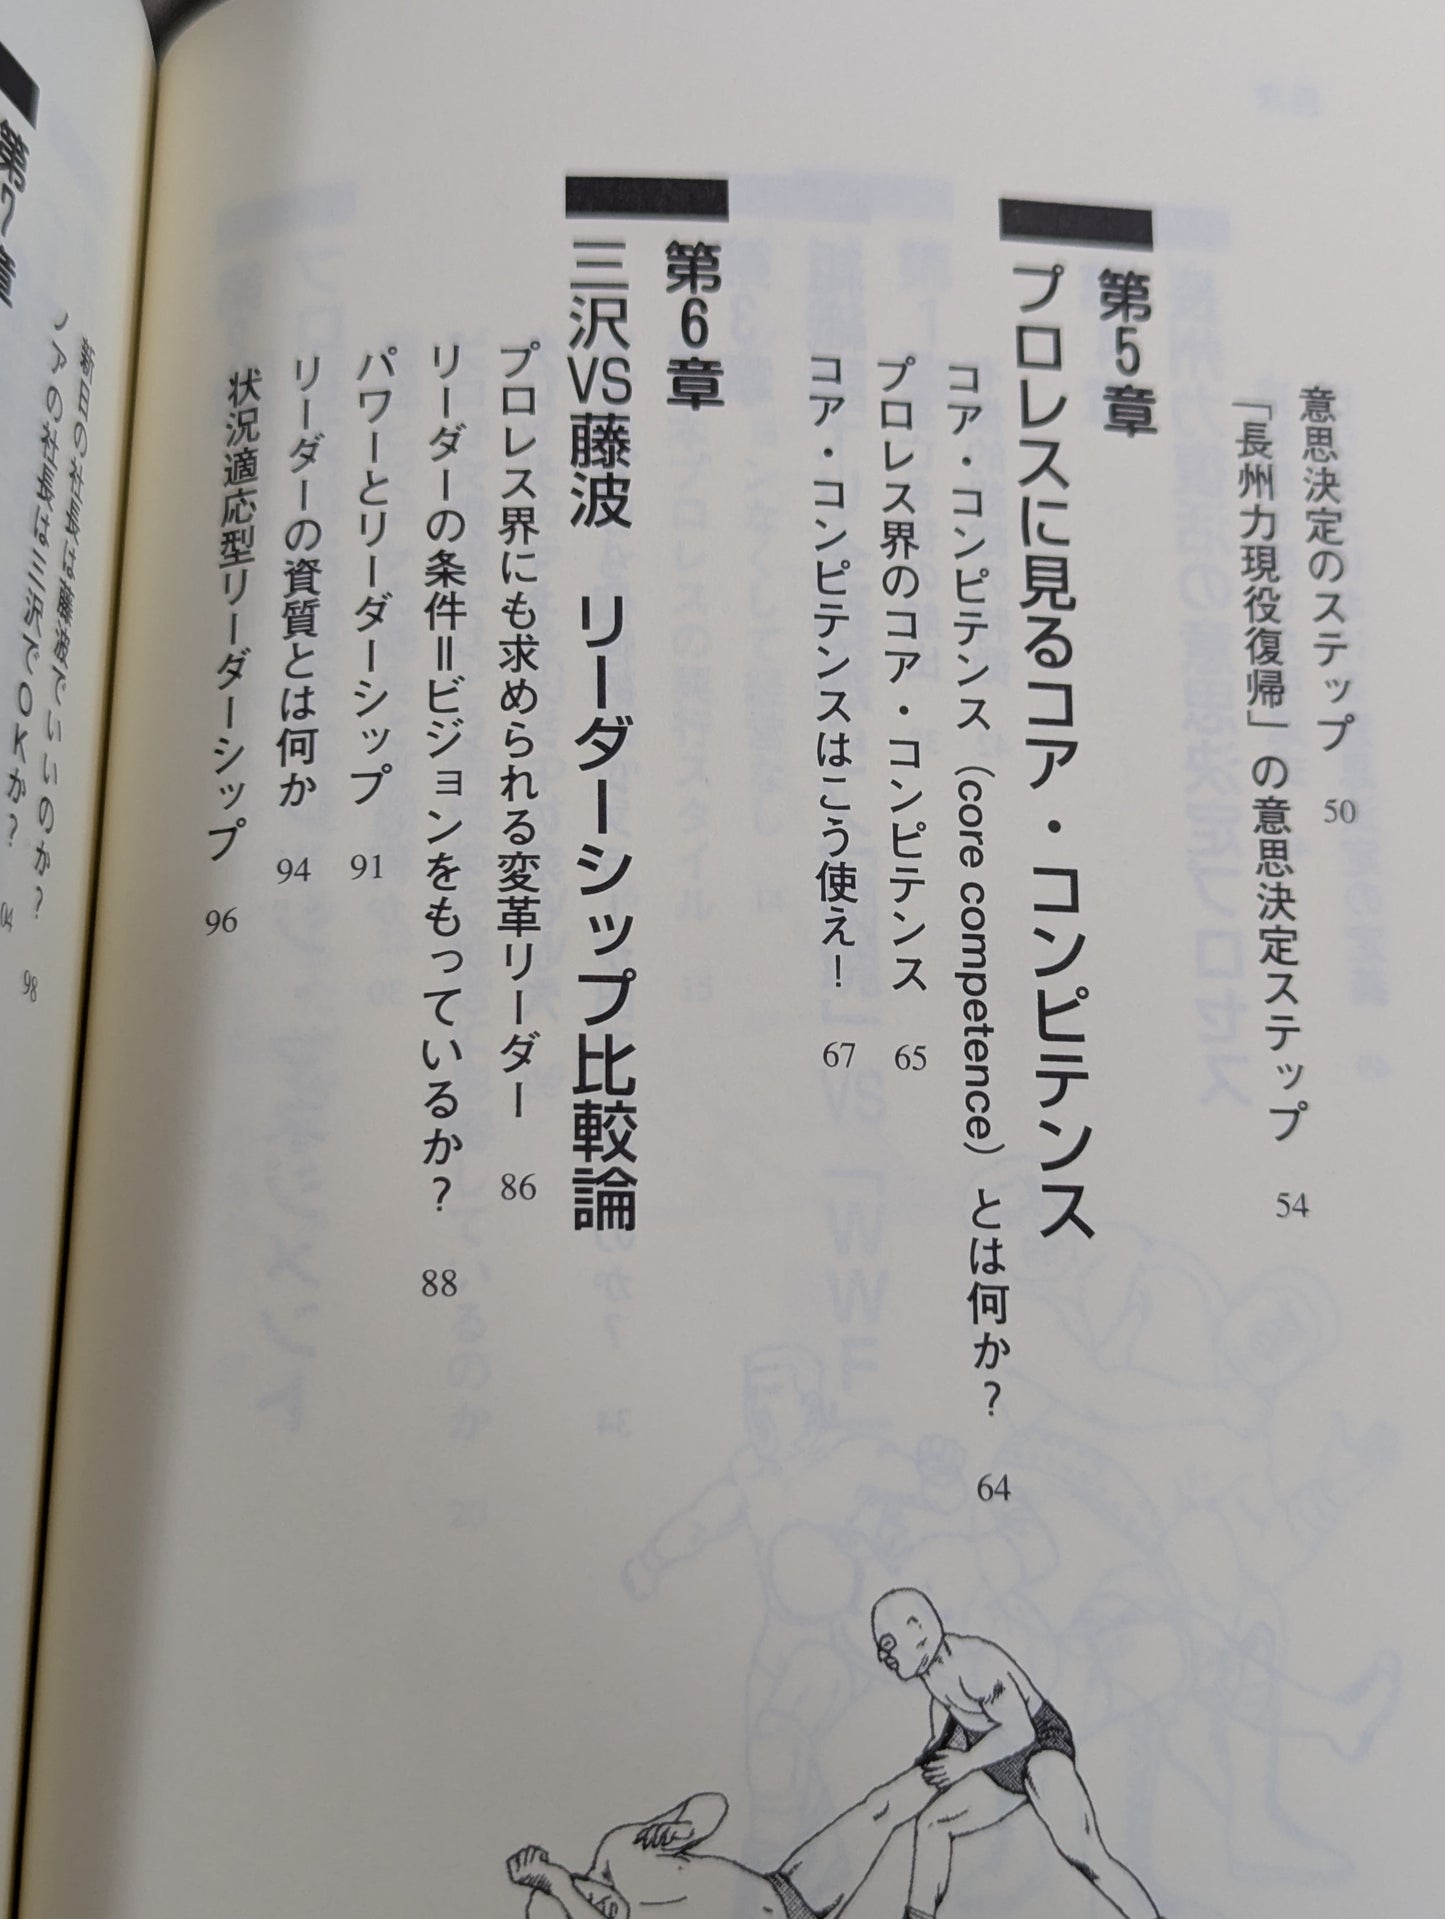 意思決定のステップ 50
「長州力現役復帰」の意思決定ステップ 54
第5章
プロレスに見るコア・コンピテンス
コア・コンピテンス（core competence）とは何か？ 64
プロレス界のコア・コンピテンス 65
コア・コンピテンスはこう使え！ 67
第6章
三沢VS藤波 リーダーシップ比較論
プロレス界にも求められる変革リーダー 86
リーダーの条件＝ビジョンをもっているか？ 88
パワーとリーダーシップ 91
リーダーの資質とは何か 94
状況適応型リーダーシップ 96
第7章
の社長は藤波でいいのか？ 98
ノアの社長は三沢でOKか？